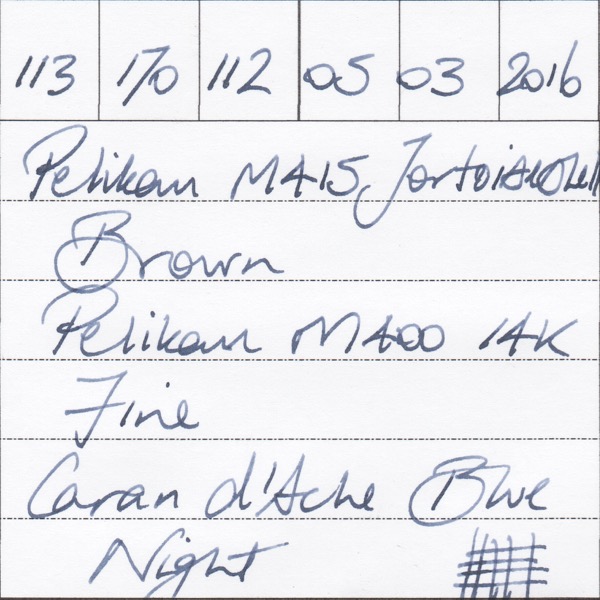 113 170 112 05 03 2016
Pelikan M415 Tortoiseshell
Brown
Pelikan M400 14K
Fine
Caran d'Ache Blue
Night